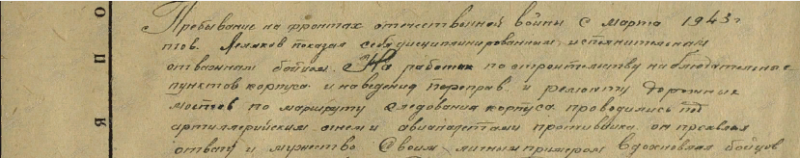 Пребывание на фронтах отечественной войны с марта 1943 г
тов. Поляков показал себя дисциплинированным, исполнительным
отважным бойцом. На работах по строительству наблюдательных
пунктов корпуса и наведения переправ и ремонту дорожных
мостов по маршруту следования корпуса проводились под
артиллерийским огнем и авианалетами противника он проявлял
отвагу и мужество. Своим личным примером вдохновлял бойцов
Я П О